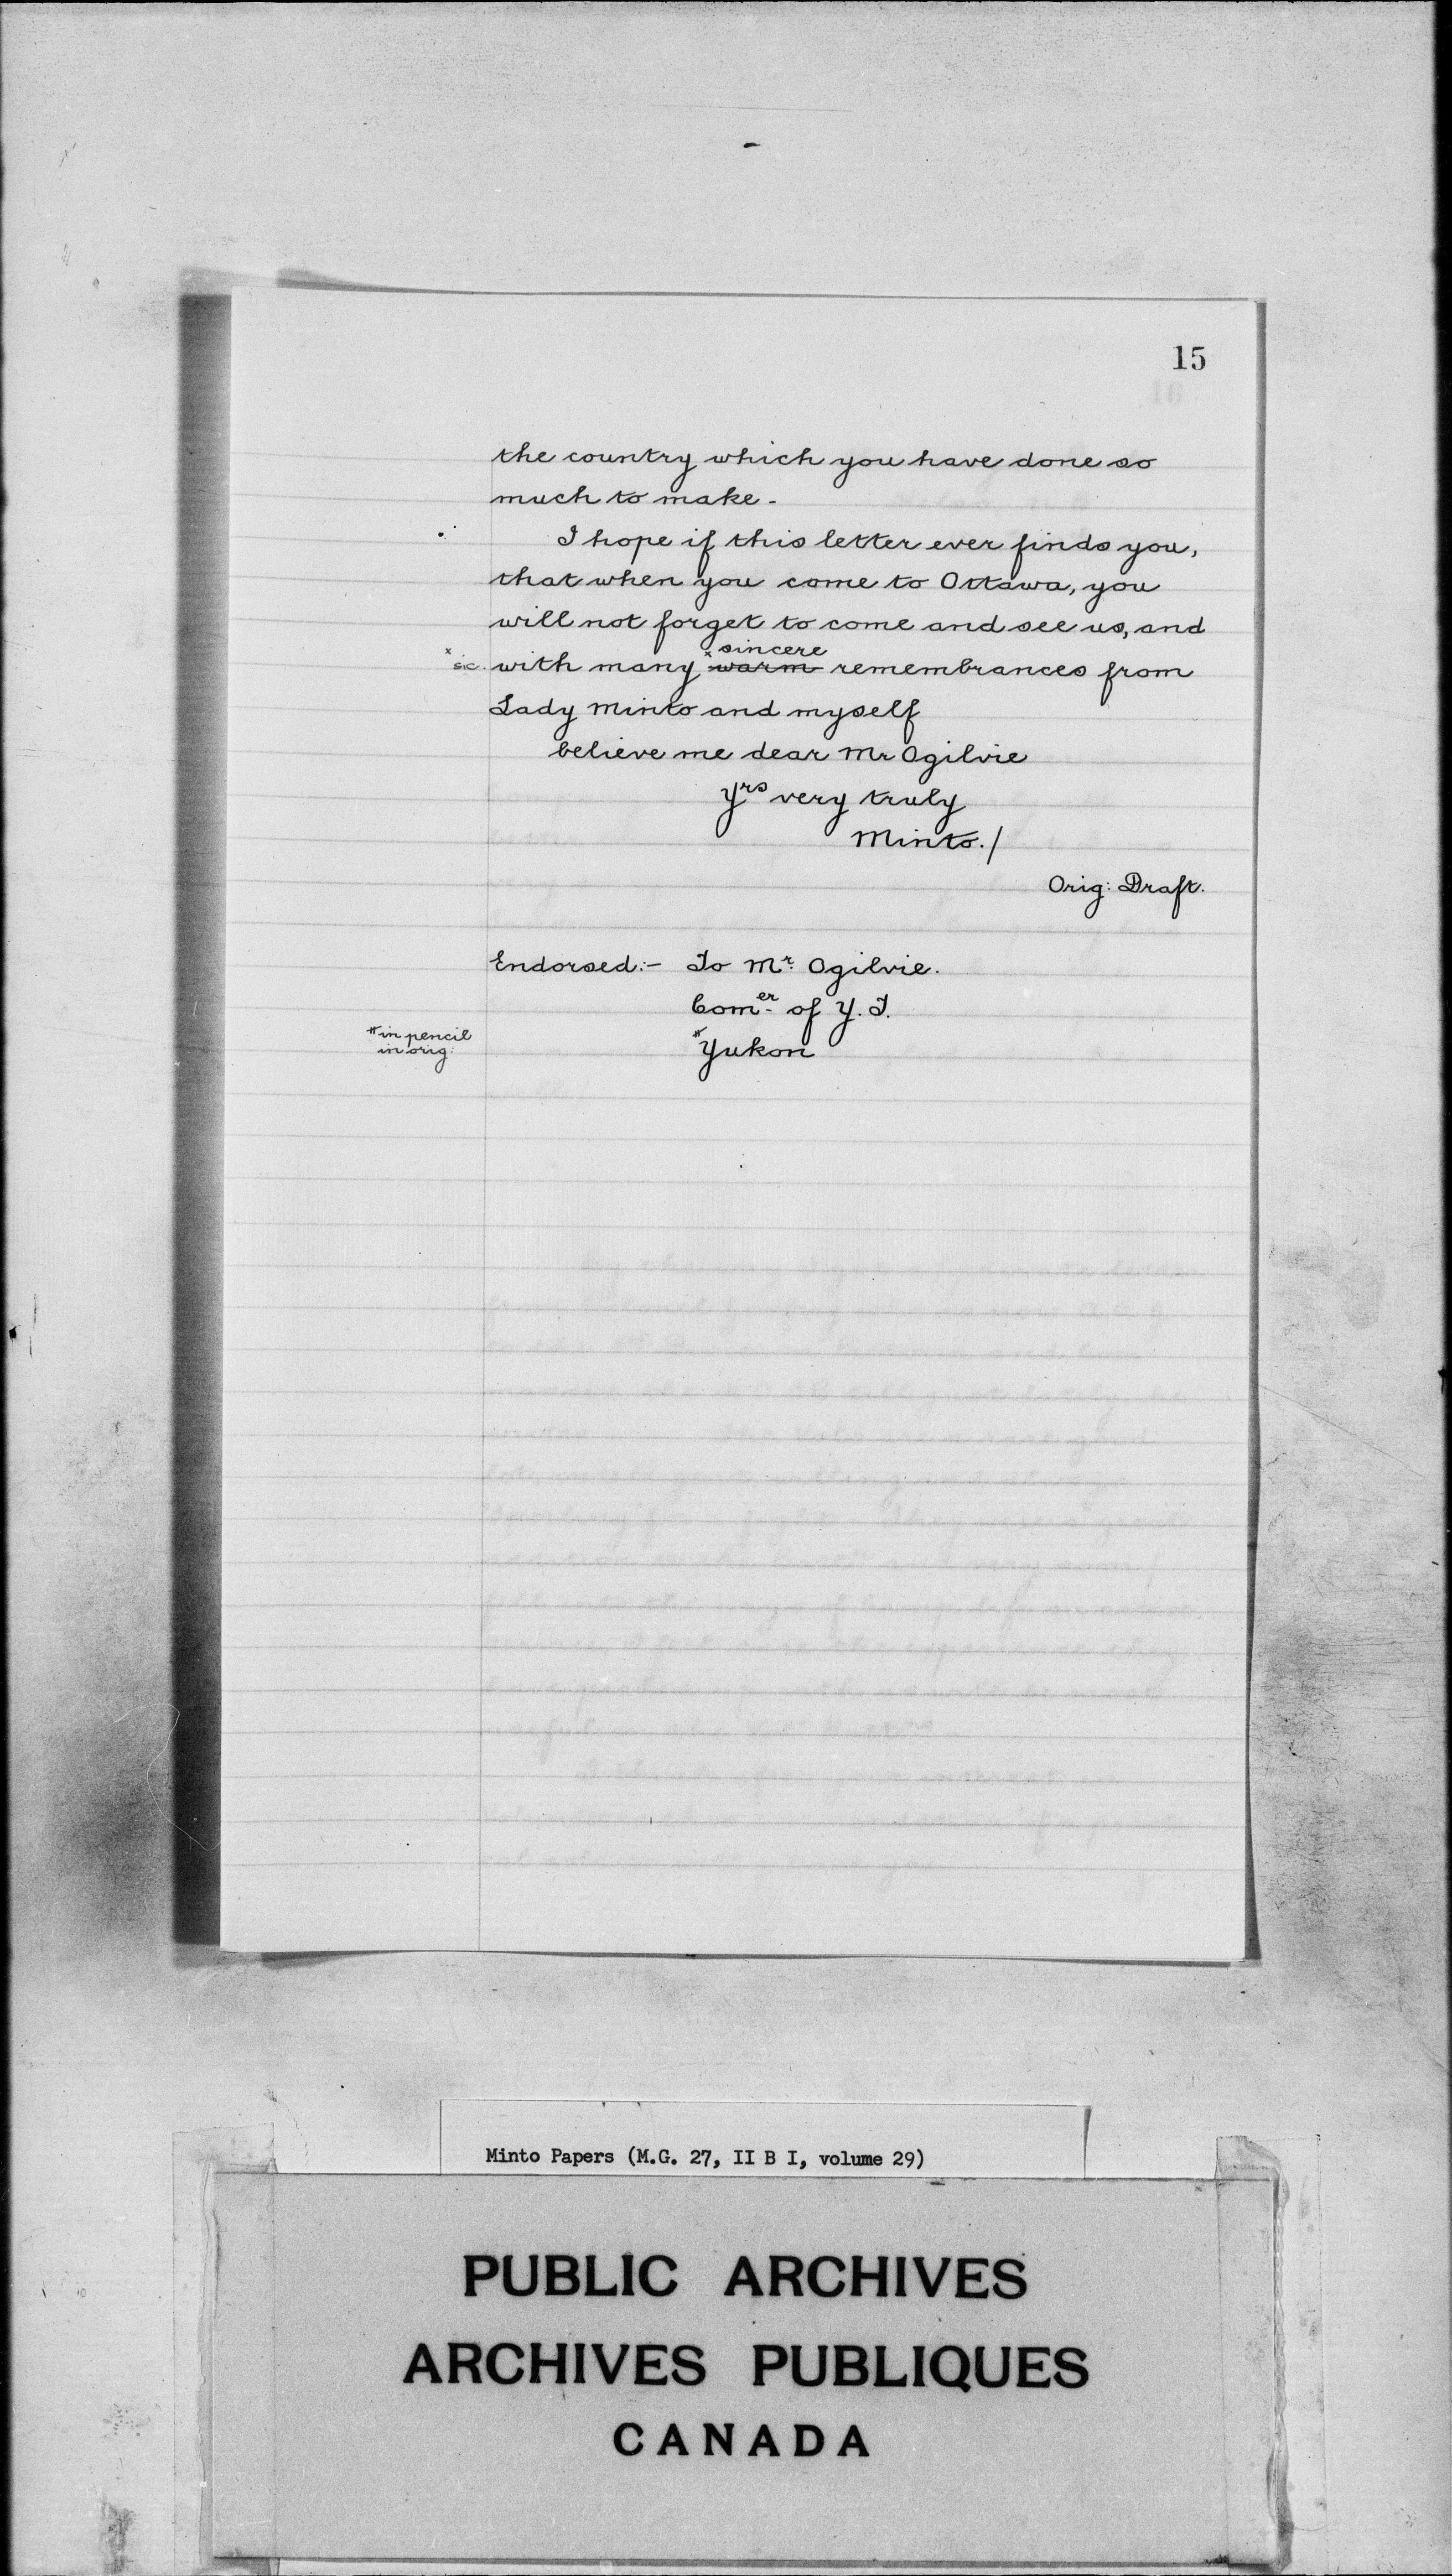 15
the country which you have done so
much to make -
I hope if this letter ever finds you,
that when you come to Ottawa, you
will not forget to come and see us, and
* sincere
* sic. with many warm remembrances from
Lady Minto and myself
believe me dear Mr Ogilvie
yrs very truly
Minto./
Orig: Draft.
Endorsed:- To Mr. Ogilvie.
Comer. of Y. T.
# in pencil
in orig:
# Yukon
Minto Papers (M.G. 27, II B I, volume 29)
PUBLIC ARCHIVES
ARCHIVES PUBLIQUES
CANADA